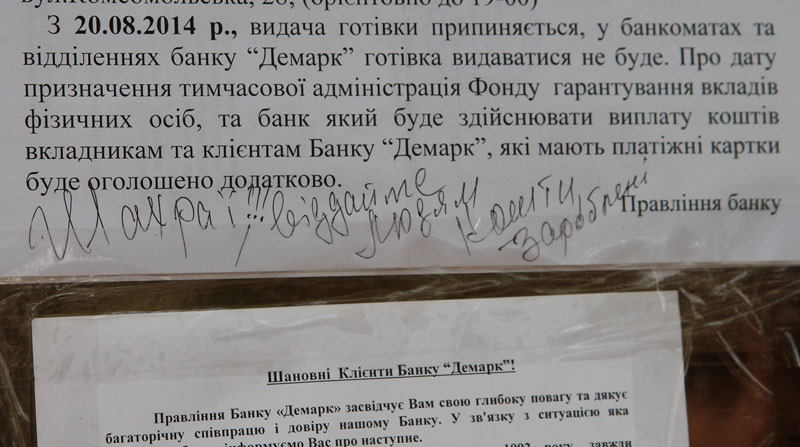 вул.Комсомольська, 28, (орієнтовно до 19-00)
З 20.08.2014 р., видача готівки припиняється, у банкоматах та
відділеннях банку “Демарк” готівка видаватися не буде. Про дату
призначення тимчасової адміністрація Фонду гарантування вкладів
фізичних осіб, та банк який буде здійснювати виплату коштів
вкладникам та клієнтам Банку “Демарк”, які мають платіжні картки
буде оголошено додатково.
Шахраї!!! віддайте людям кошти зароблені
Правління банку
Шановні Клієнти Банку “Демарк”!
Правління Банку «Демарк» засвідчує Вам свою глибоку повагу та дякує
багаторічну співпрацю і довіру нашому Банку. У зв'язку з ситуацією яка
інформуємо Вас про наступне.
1992 року завжди